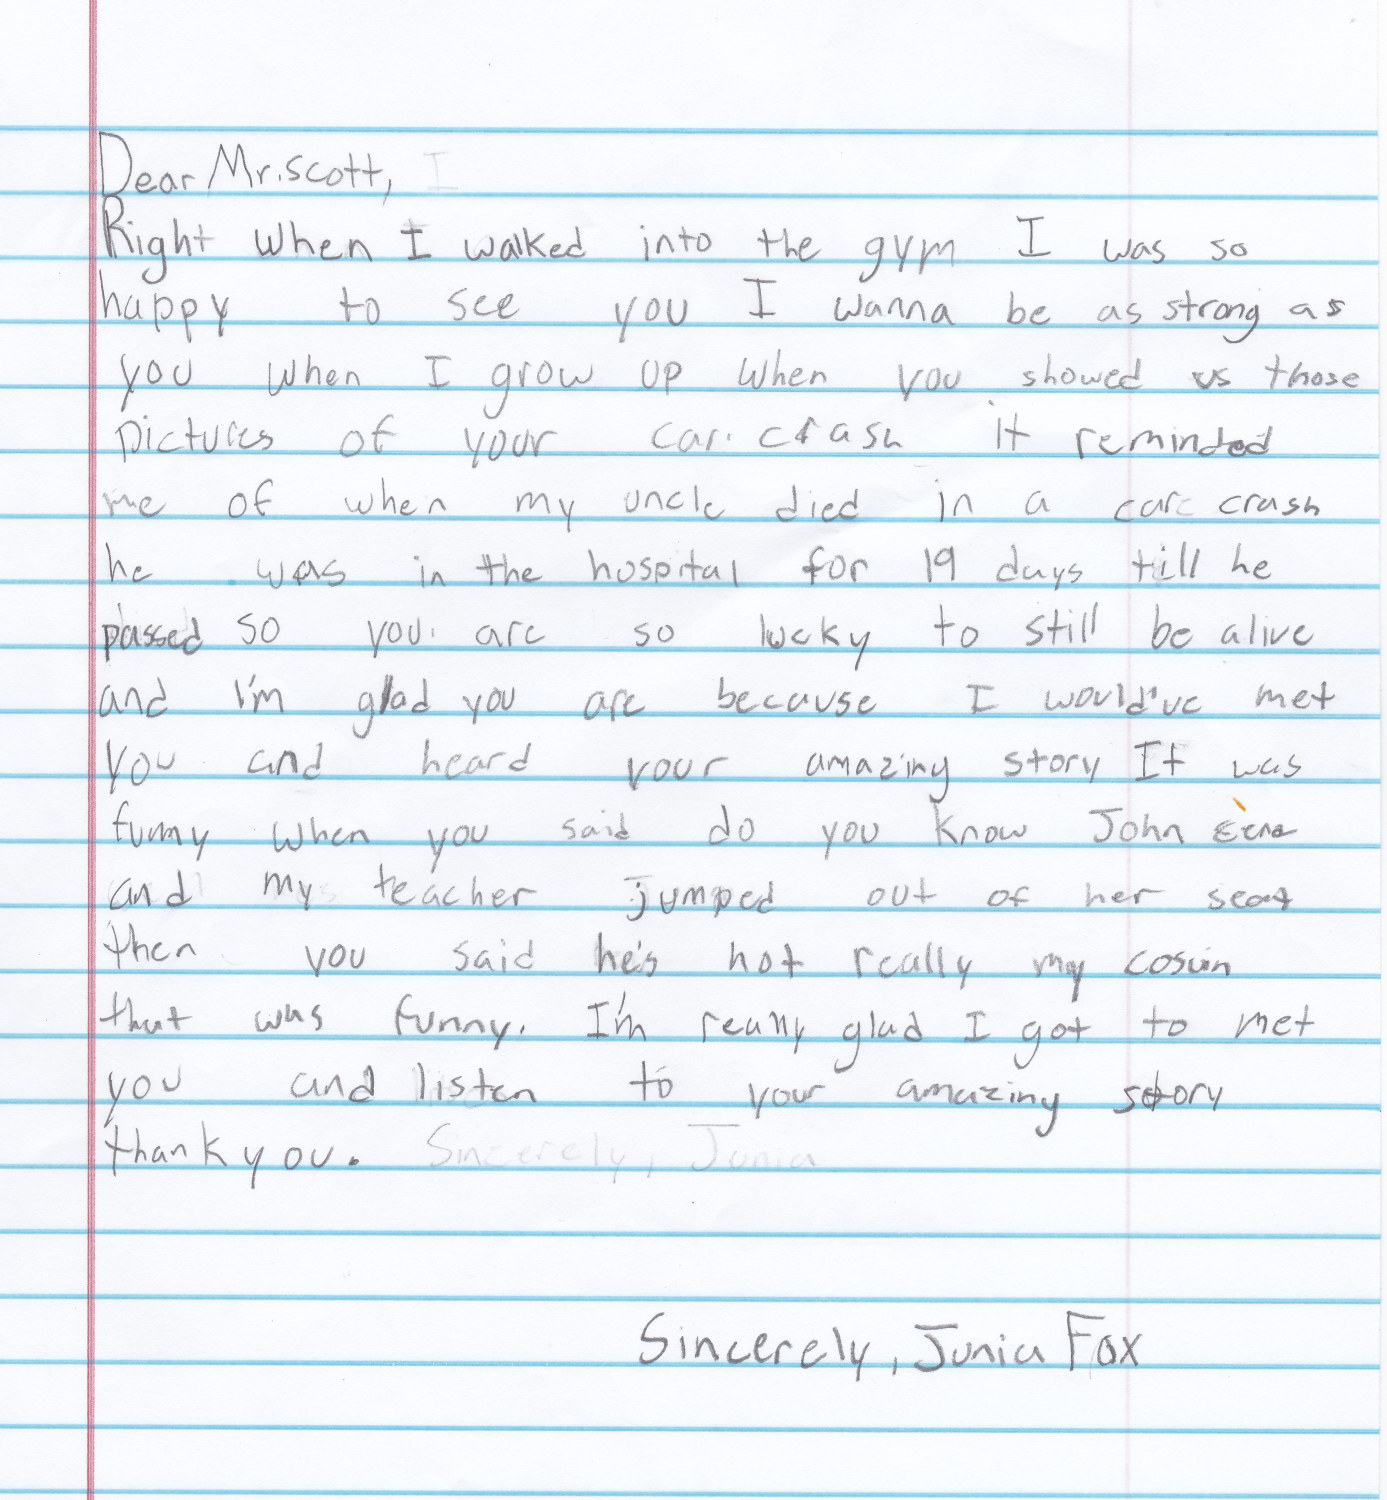 Dear Mr.scott, I
Right when I walked into the gym I was so
happy to see you I wanna be as strong as
you when I grow up when you showed us those
pictures of your car crash it reminded
me of when my uncle died in a car crash
he was in the hospital for 19 days till he
passed so you are so lucky to still be alive
and I'm glad you are because I would've met
you and heard your amazing story It was
funny when you said do you know John
and my teacher jumped out of her seat
then you said he's not really my cosuin
that was funny. I'm really glad I got to met
you and listen to your amazing story
thank you. Sincerely, Junia
Sincerely, Junia Fox